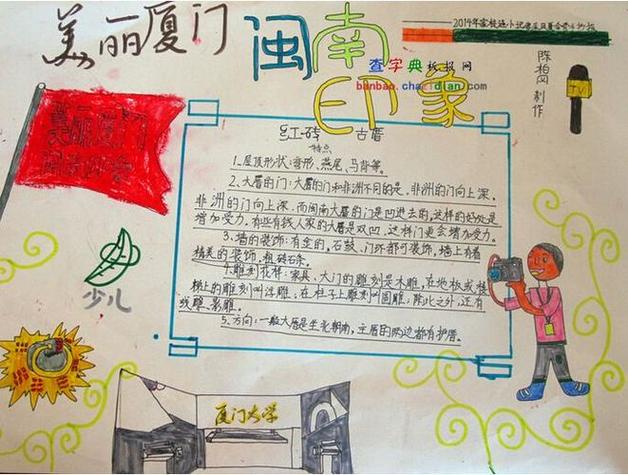 美丽厦门
闽南
印象
查字典板报网
banbao.chazidian.com
陈柏同 制作
TV
美丽厦门
少儿
红砖 古厝
特点
1、屋顶形状:弯形、燕尾、马背等。
2、大厝的门:大厝的门和非洲不同的是,非洲的门向上深,
非洲的门向上深,而闽南大厝的门是凹进去的,这样的好处是
增加受力。有些有钱人家的大厝是双凹,这样门更会增加受力。
3、墙的装饰:有金的,石鼓、门环都可装饰,墙上有着
精美的装饰,粗砖石条。
4、雕刻花样:家具、大门的雕刻是木雕,在地板或楼
梯上的雕刻叫浮雕,在柱子上雕刻叫圆雕,除此之外,还有
线雕、影雕。
5、方向:一般大厝是坐北朝南,主厝的两边都有护厝。
厦门大学